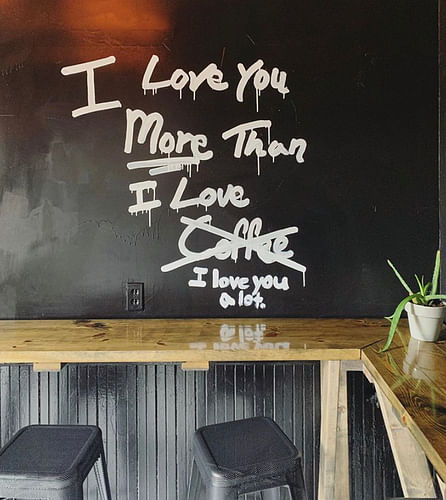 I Love You
More Than
I Love
Coffee
I love you
a lot.